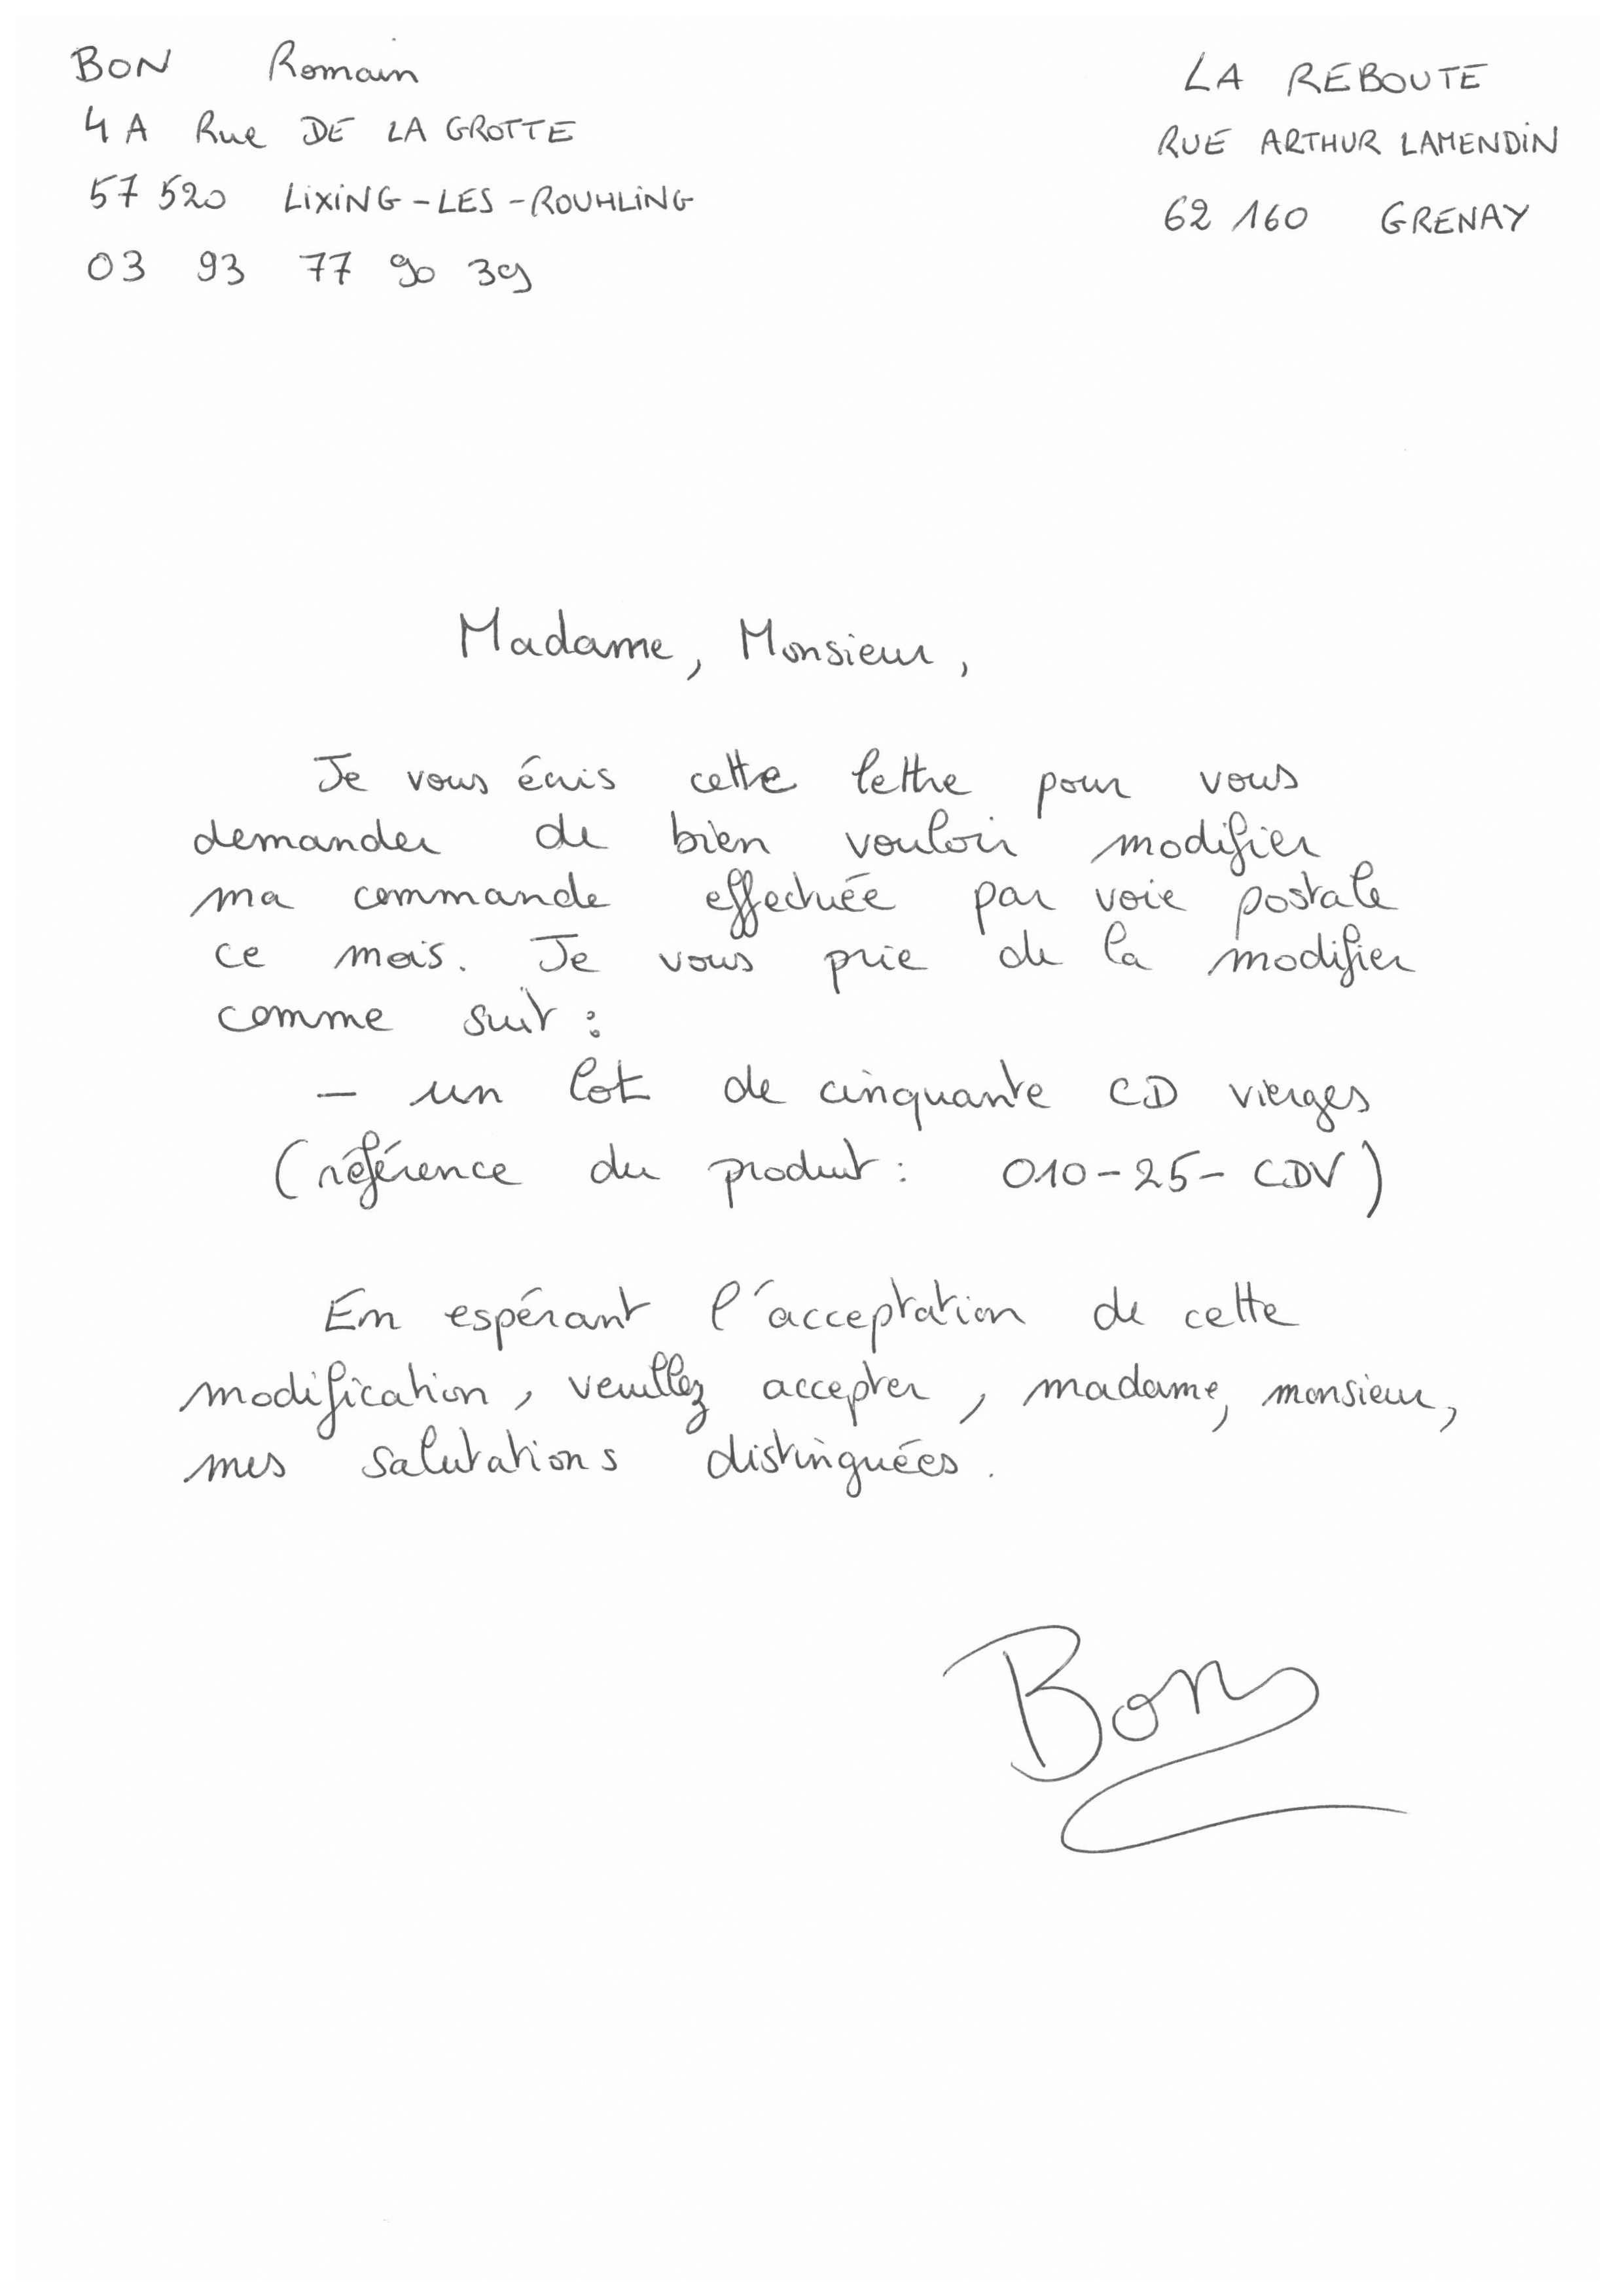 BON Romain
4 A Rue DE LA GROTTE
57 520 LIXING-LES-ROUHLING
03 93 77 90 39
LA REBOUTE
RUE ARTHUR LAMENDIN
62 160 GRENAY
Madame, Monsieur,
Je vous écris cette lettre pour vous
demander de bien vouloir modifier
ma commande effectuée par voie postale
ce mois. Je vous prie de la modifier
comme suit :
- un lot de cinquante CD vierges
(référence du produit : 010-25-CDV)
En espérant l'acceptation de cette
modification, veuillez accepter, madame, monsieur,
mes salutations distinguées.
Bon